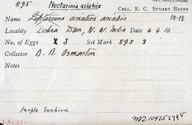 895 Nectarinia asiatica
COLL. E. C. STUART BAKER
Name Leptocoma asiatica asiatica 10-18
Locality Dehra Dun, N. W. India Date 6.4.16
No. of Eggs X 3 Set Mark 895. 3
Collector B. B. Osmaston
Notes
Purple Sunbird